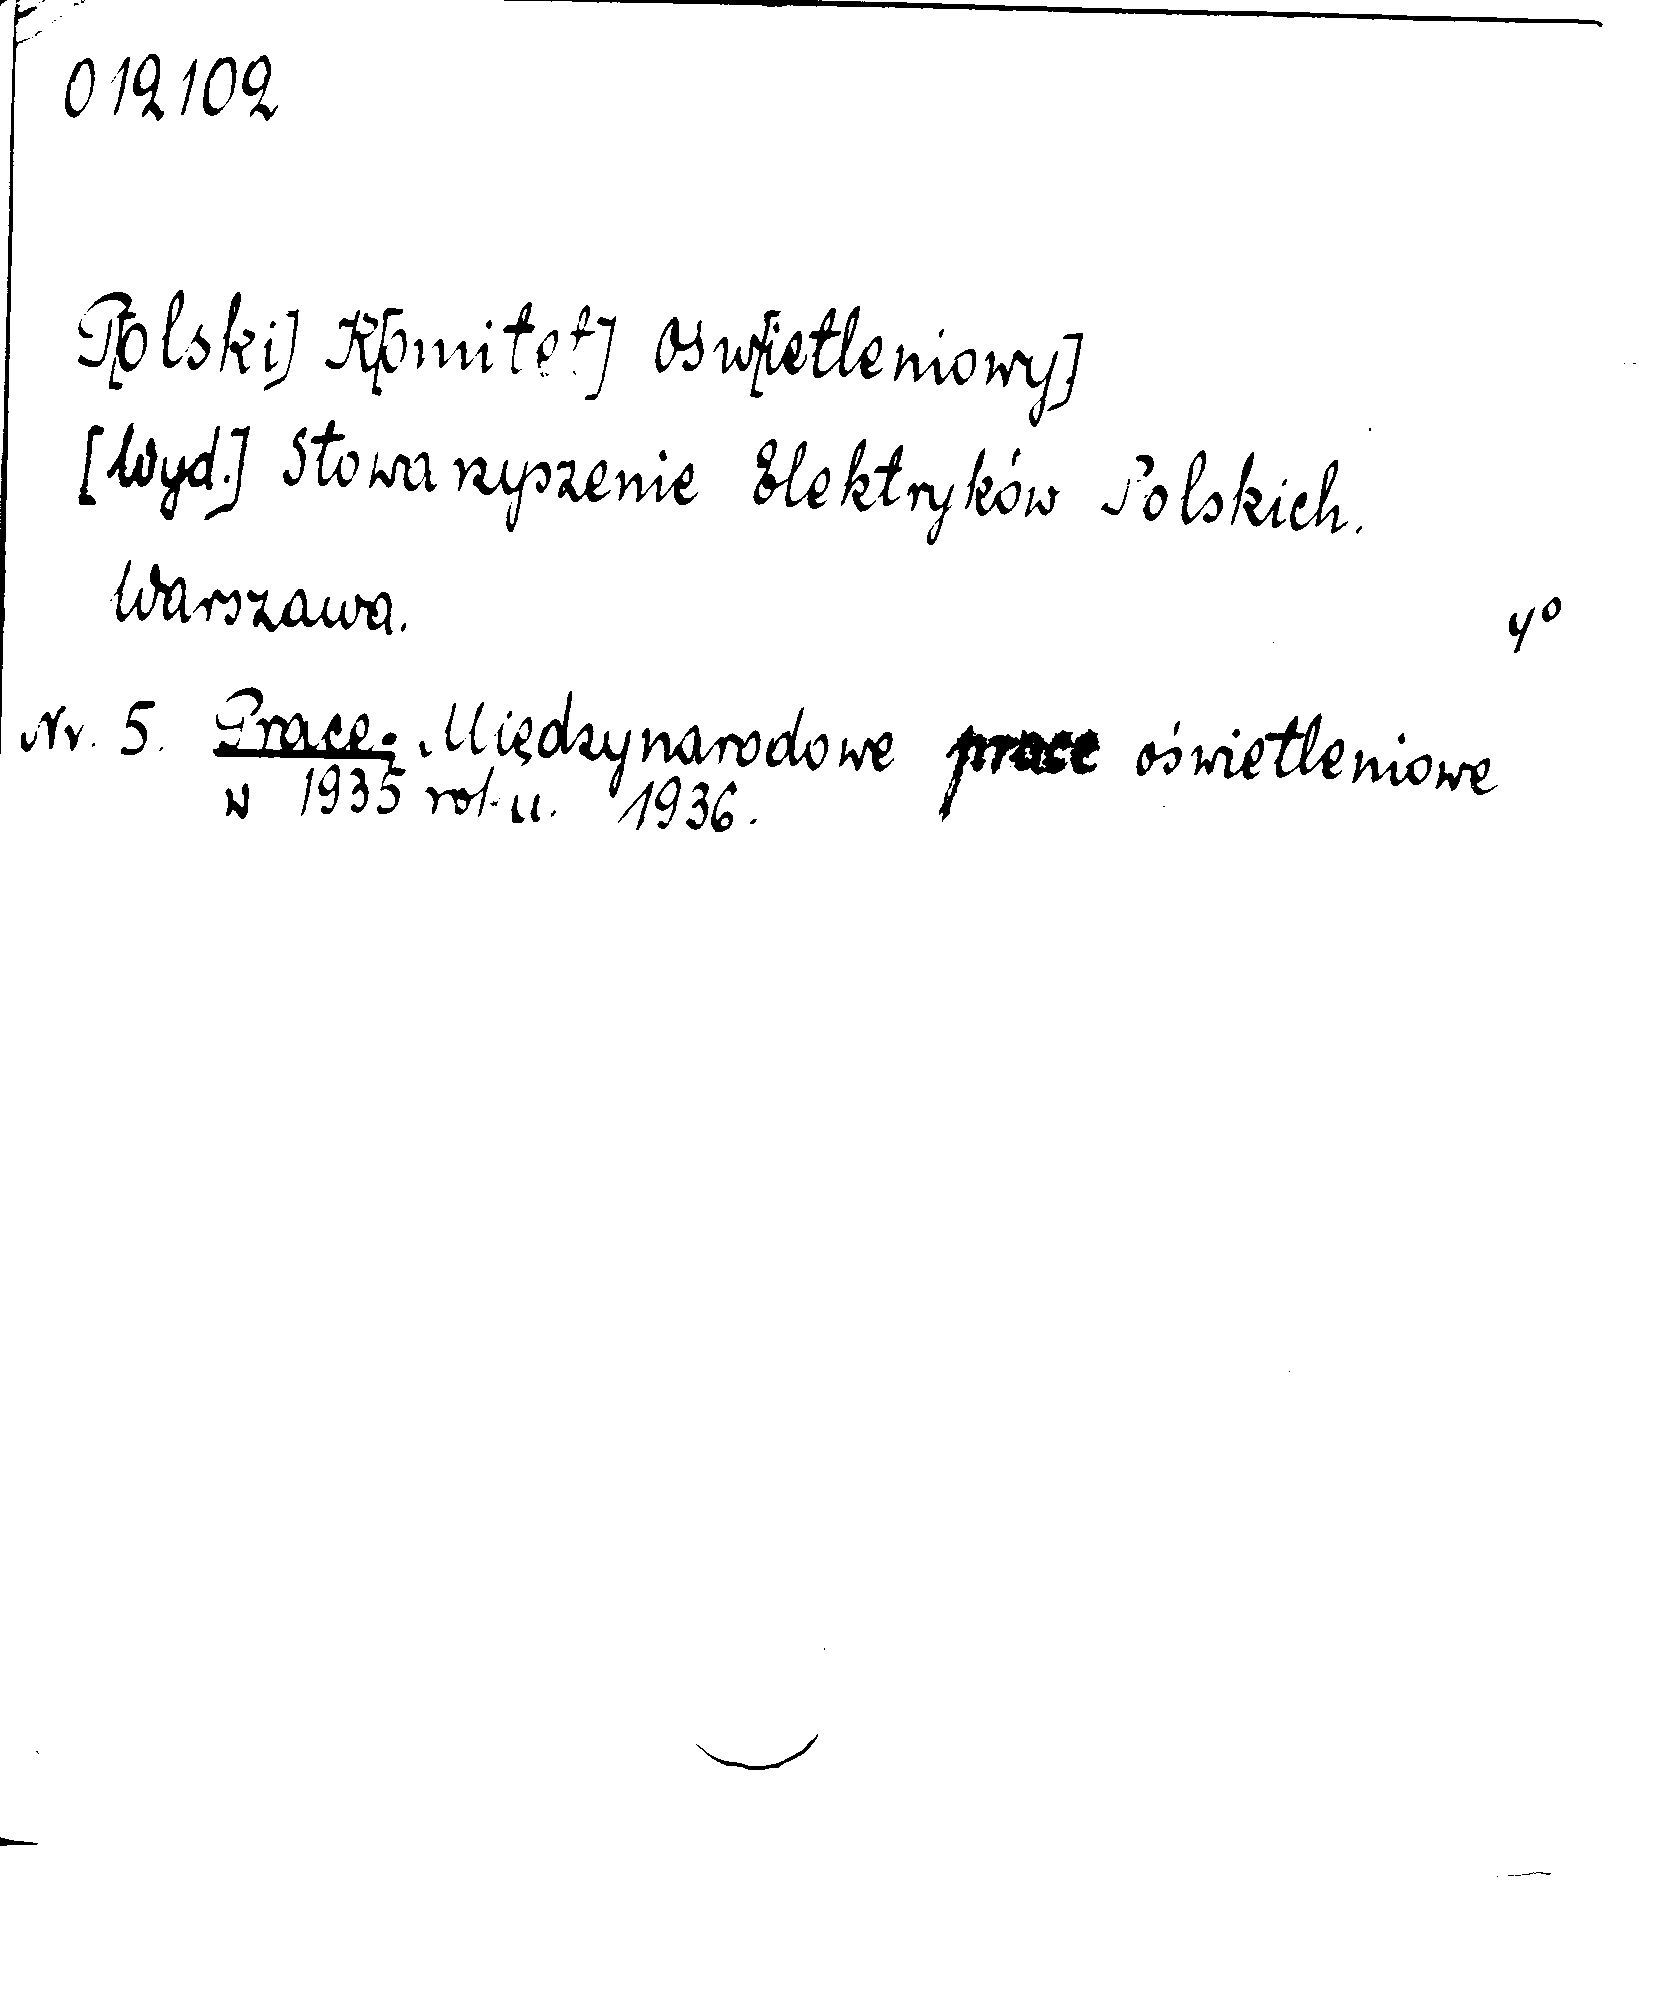 012102
P[olski] K[omitet] Osw[ietleniowy]
[Wyd.] Stowarzyszenie Elektryków Polskich.
Warszawa.
4°
Nr. 5. Prace. Międzynarodowe prace oświetleniowe
w 1935 roku. 1936.